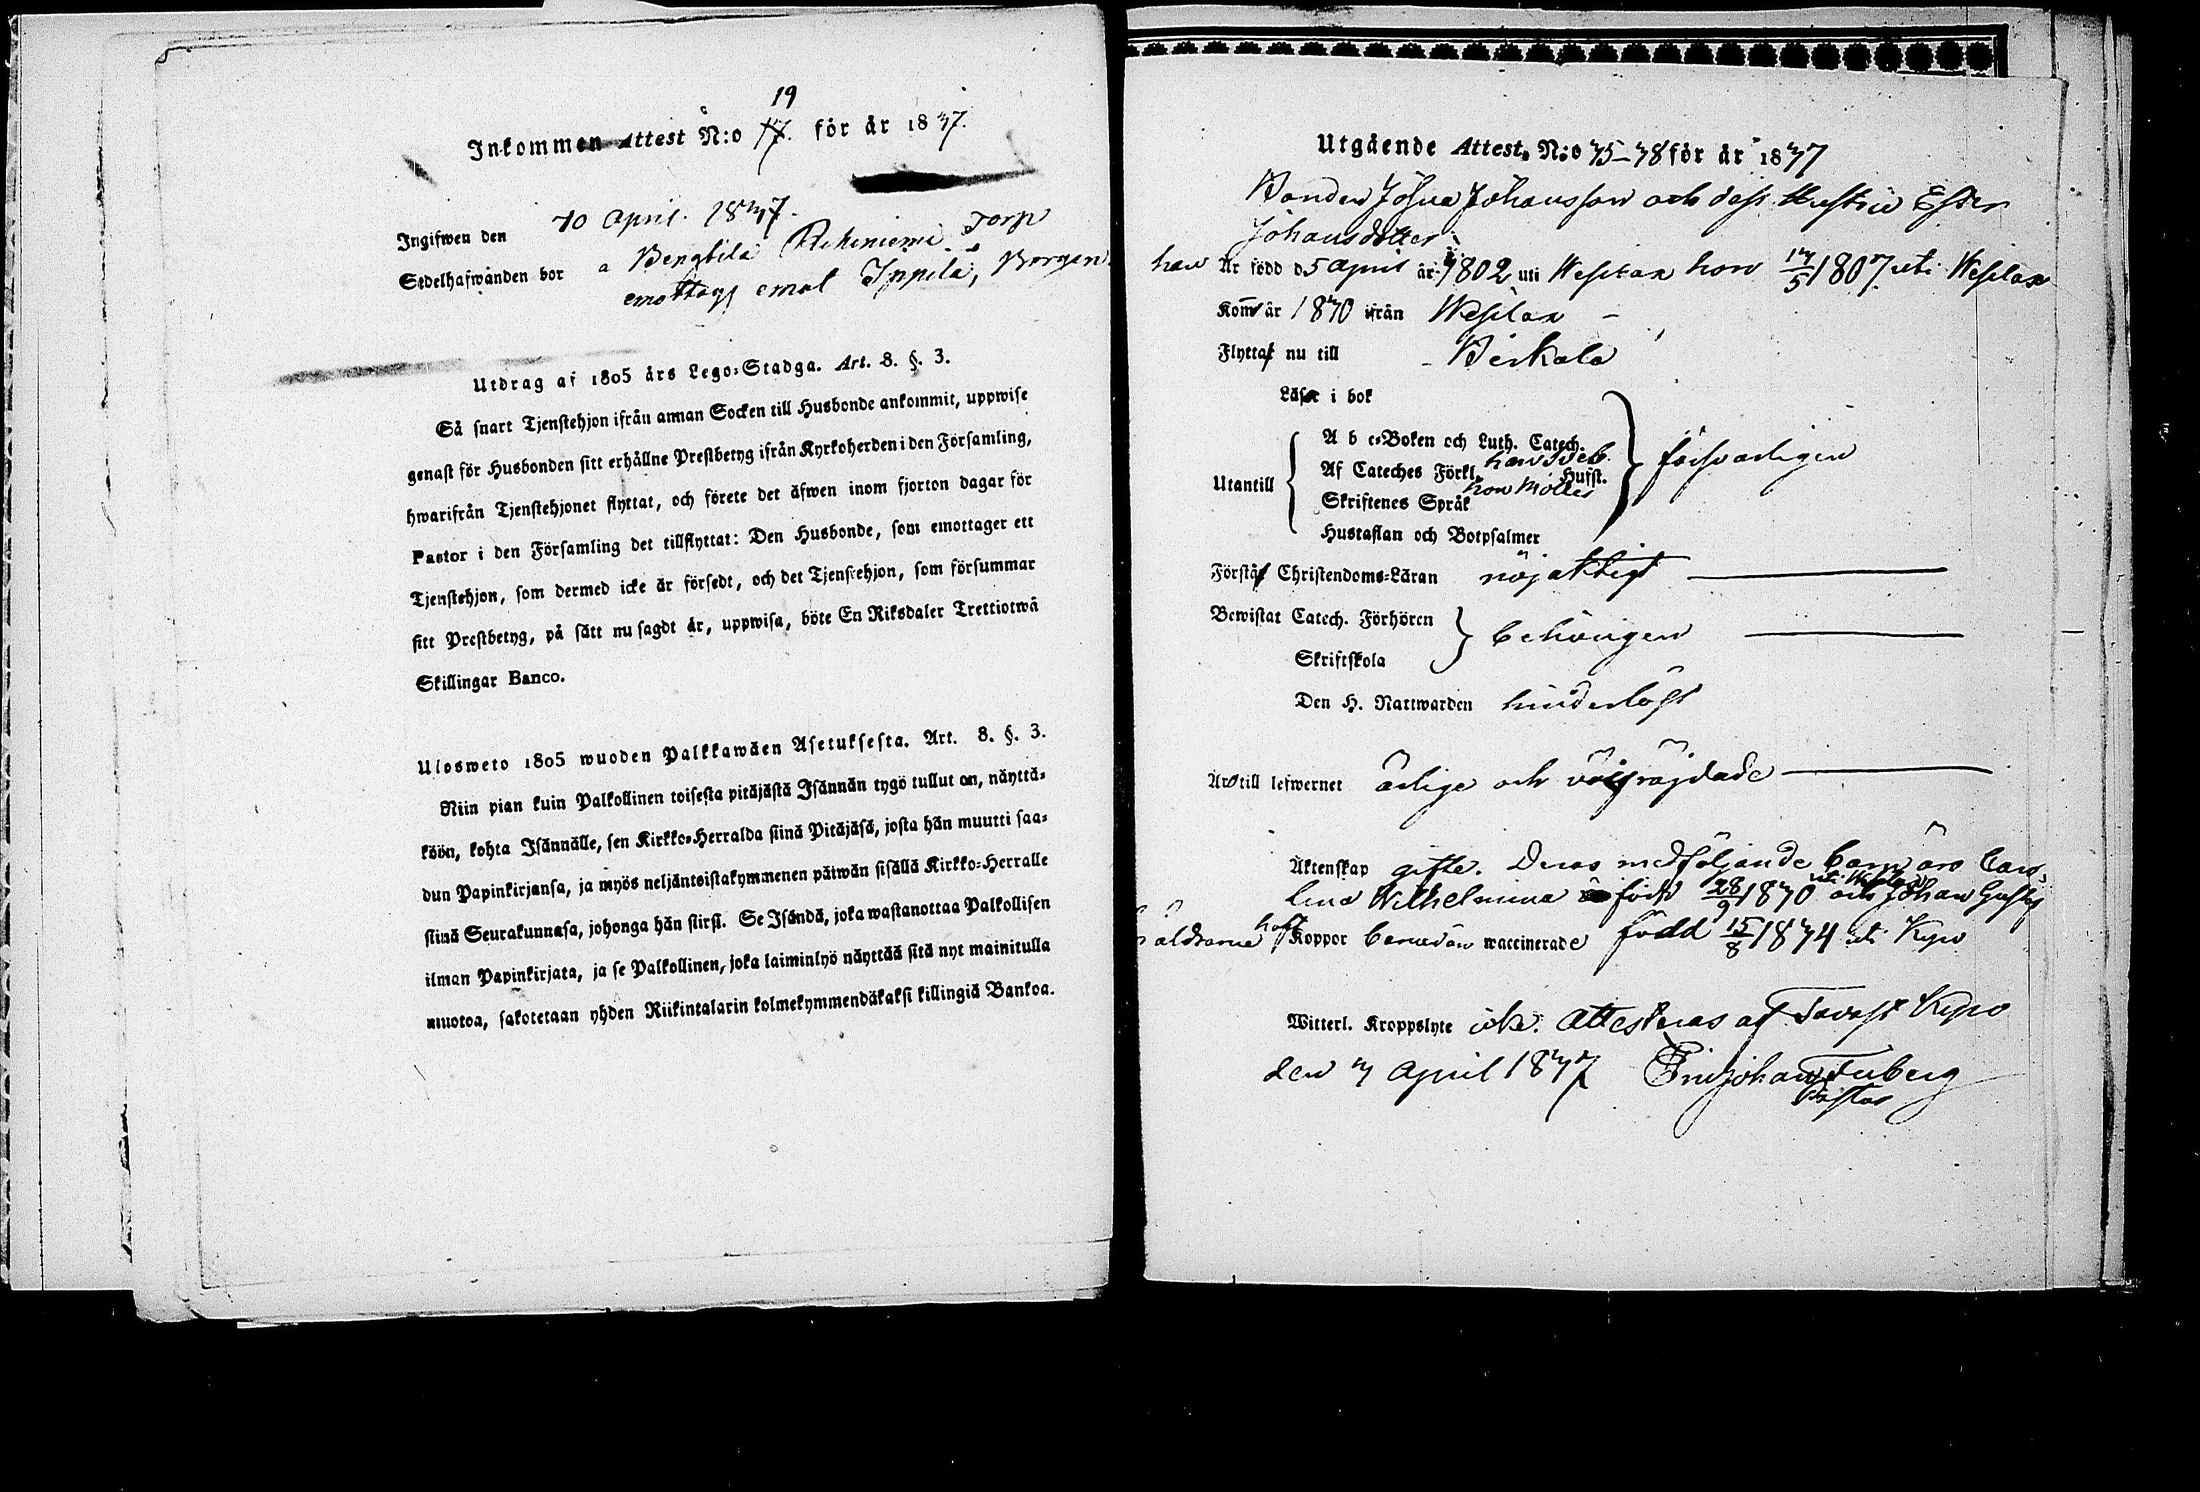 19
Inkommen Attest N:o 17. för år 1837.
Ingifwen den 10 April 1837.
Sedelhafwanden bor å Bengtila Torp
emottags emot Ippila, Borgen
Utdrag af 1805 års Lego-Stadga. Art. 8. §. 3.
Så snart Tjenstehjon ifrån annan Socken till Husbonde ankommit, uppwise
genast för Husbonden sitt erhållne Prestbetyg ifrån Kyrkoherden i den Församling,
hwarifrån Tjenstehjonet flyttat, och förete det äfwen inom fjorton dagar för
Pastor i den Församling det tillflyttat: Den Husbonde, som emottager ett
Tjenstehjon, som dermed icke är försedt, och det Tjenstehjon, som försummar
sitt Prestbetyg, på sätt nu sagdt är, uppwisa, böte En Riksdaler Trettiotwå
Skillingar Banco.
Ulosweto 1805 wuoden Palkkawäen Asetuksesta. Art. 8. §. 3.
Niin pian kuin Palkollinen toisesta pitäjästä Isännän tygö tullut on, näyttä-
köön, kohta Isännälle, sen Kirkko-Herralda siinä Pitäjäsä, josta hän muutti saa-
dun Papinkirjansa, ja myös neljäntoistakymmenen päiwän sisällä Kirkko-Herralle
siinä Seurakunnasa, johonga hän siirsi. Se Isändä, joka wastanottaa Palkollisen
ilman Papinkirjata, ja se Palkollinen, joka laiminlyö näyttää sitä nyt mainitulla
muotoa, sakotetaan yhden Riikintalarin kolmekymmendäkaksi killingiä Bankoa.
Utgående Attest. N:o 35-38 för år 1837
Bonden Josua Johansson och dess Hustru Ester
Johansdotter
han Är född d 5 April år 1802 uti Westlax hon 13/5 1807 uti Westlax
Kom år 1830 ifrån Westlax
Flytta nu till Birkala
Läsa i bok
A b c-Boken och Luth. Catech.
Utantill Af Cateches Förkl. han Sveb. Hufst. försvarligen
Skriftenes Språk hon Möllers
Hustaflan och Botpsalmer
Förstå Christendoms-Läran nöjaktigt
Bewistat Catech. Förhören behörigen
Skriftskola
Den H. Nattwarden hinderlöst
Äro till lefwernet ärlige och välfräjdade
Äktenskap gifte. Deras medföljande barn äro Caro-
lina Wilhelmina född 28/9 1830 uti Westlax och Johan Gustaf
Föräldrarne haft Koppor barnen äro waccinerade född 15/8 1834 uti Kyro
Witterl. Kroppslyte icke. Attesteras af Tavast Kyro
den 3 April 1837 Johan Forberg
Pastor